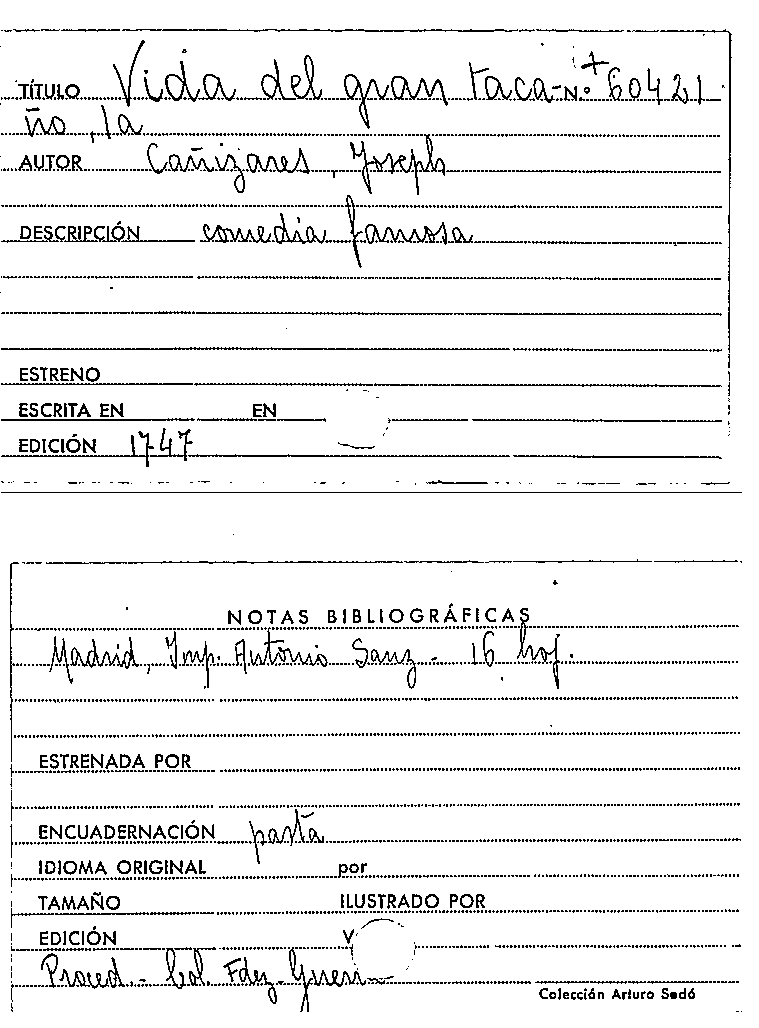 TÍTULO Vida del gran taca- N.º + 60421
ño, la
AUTOR Cañizares, Joseph
DESCRIPCIÓN comedia famosa
ESTRENO
ESCRITA EN EN
EDICIÓN 1747
NOTAS BIBLIOGRÁFICAS
Madrid, Imp. Antonio Sanz - 16 hoj.
ESTRENADA POR
ENCUADERNACIÓN pasta
IDIOMA ORIGINAL por
TAMAÑO ILUSTRADO POR
EDICIÓN V
Proced.- Col. Fdez-Guerr
Colección Arturo Sedó